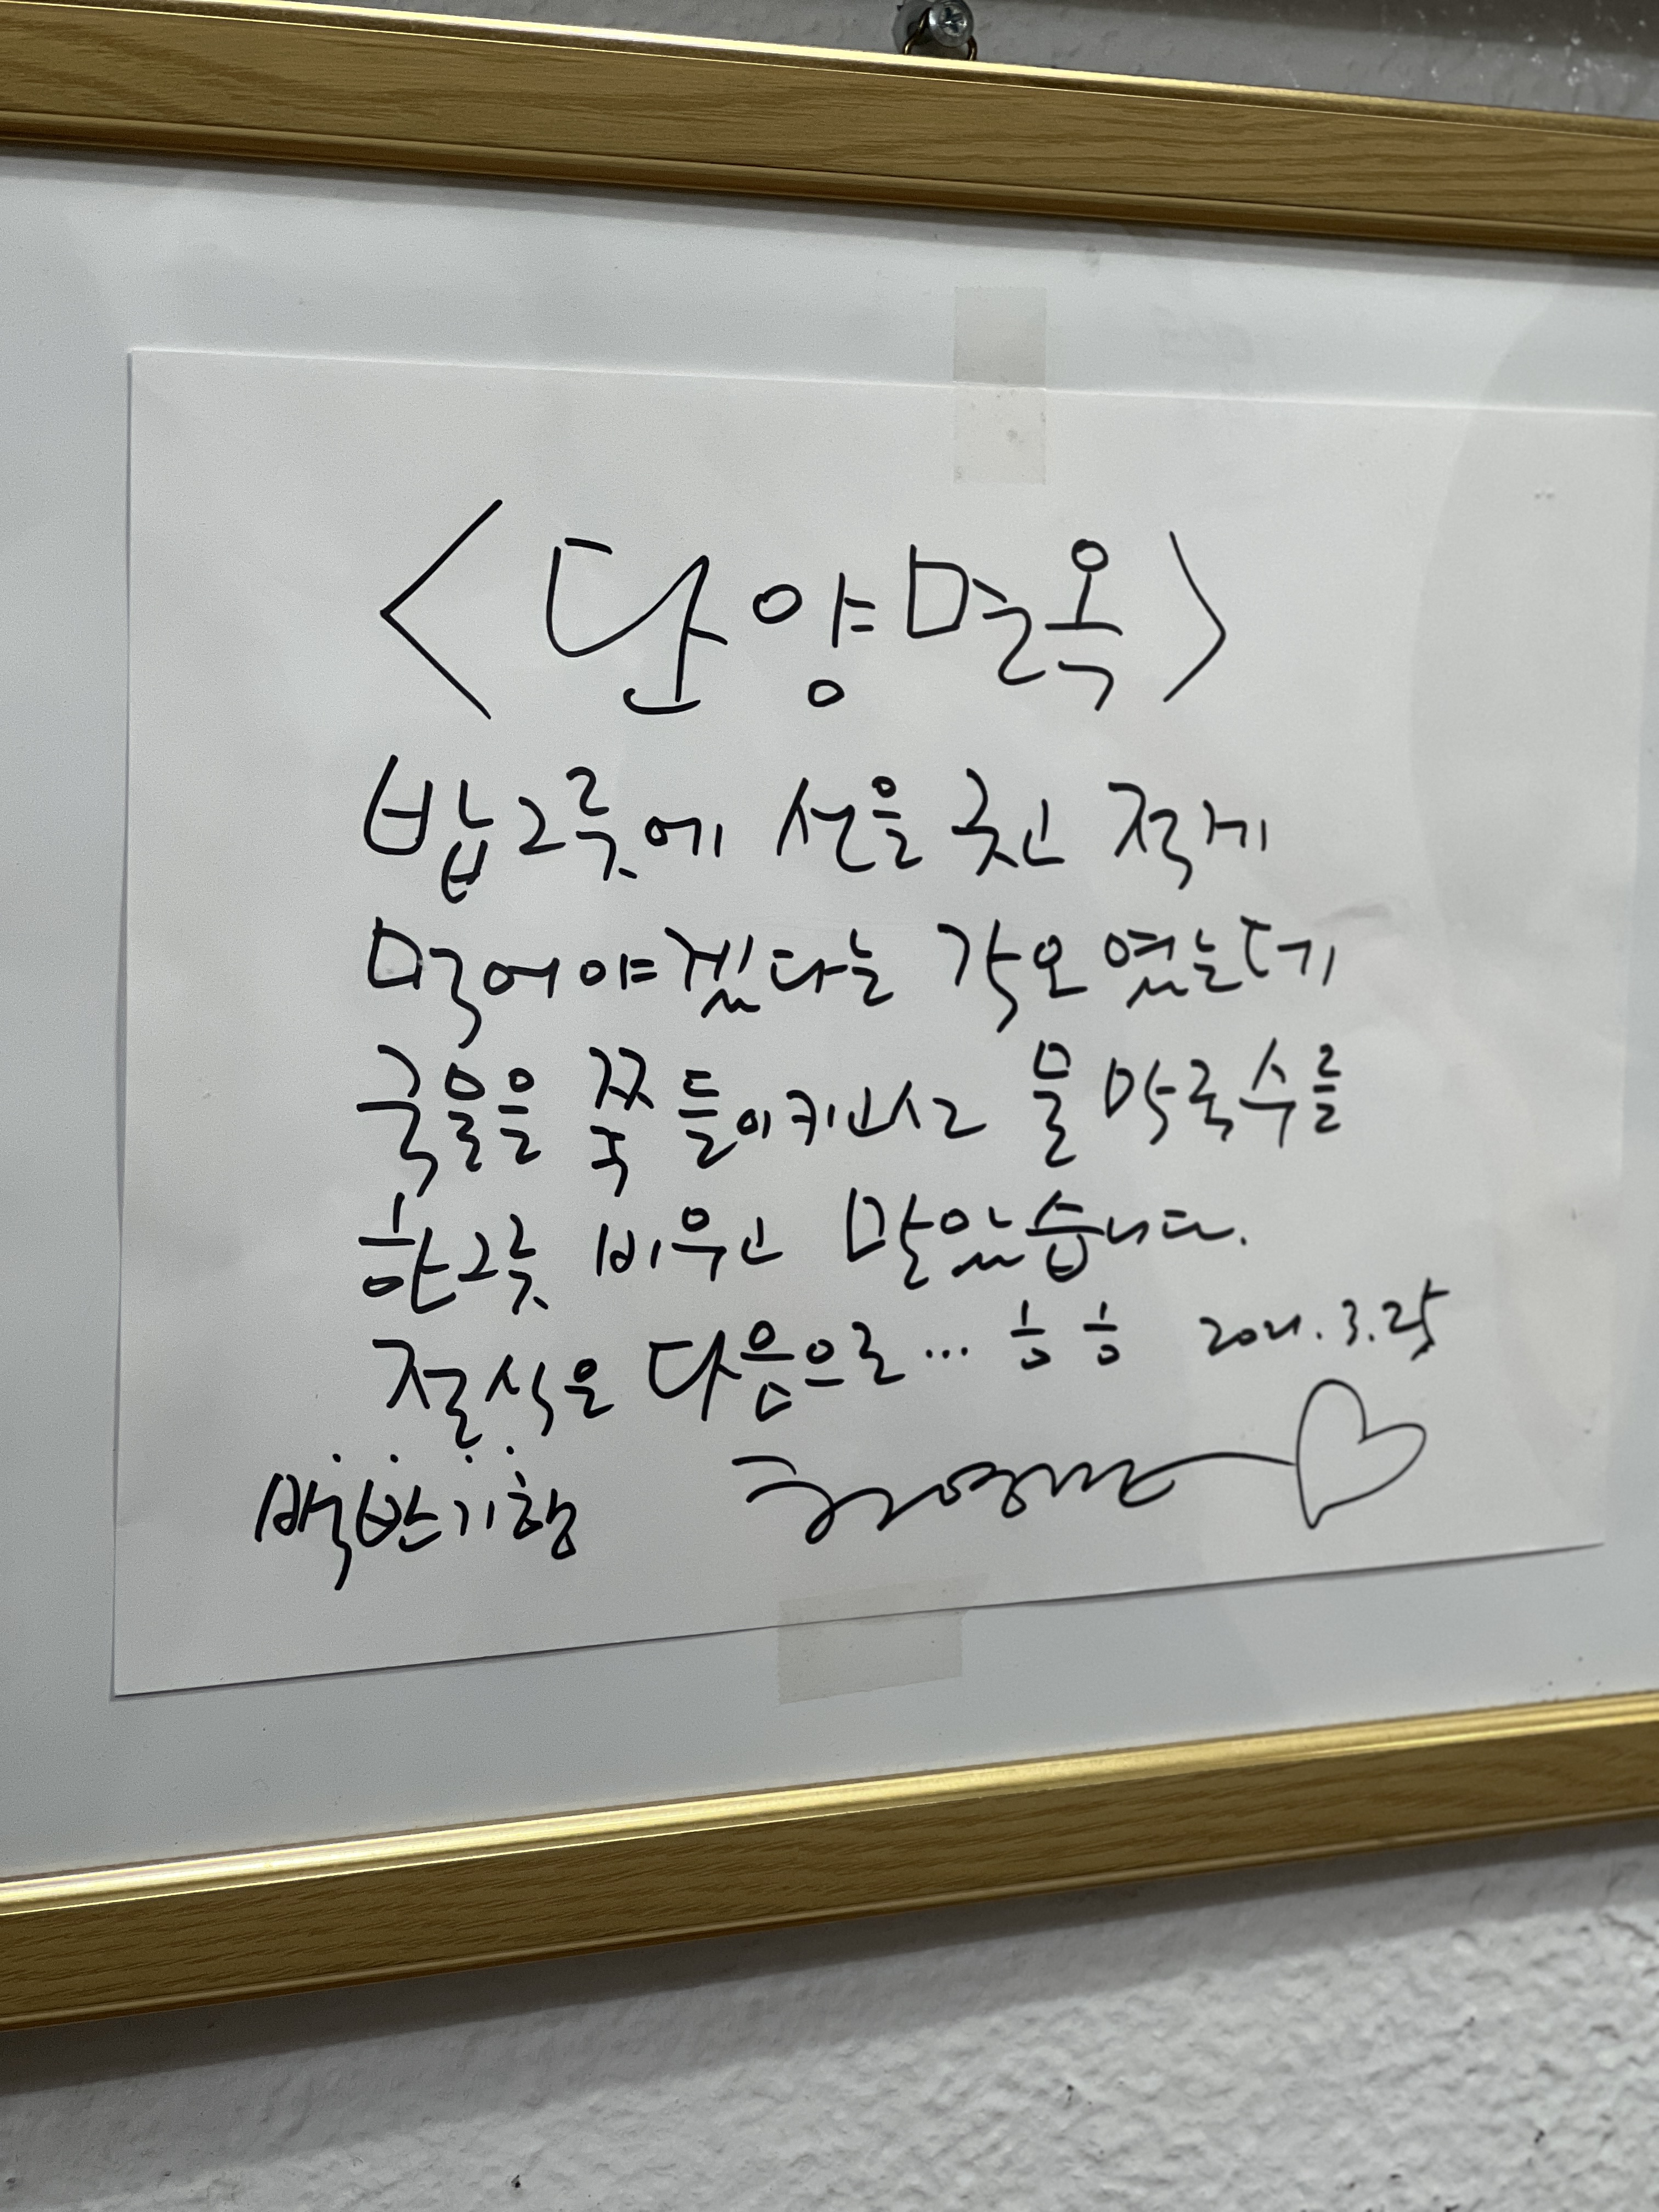 <단양면옥>
밥그릇에 선을 긋고 적게
먹어야겠다는 각오였는데
국물을 쭉 들이키고서 물막국수를
한그릇 비우고 말았습니다.
절식은 다음으로... 흐흐 2021.3.25
백반기행